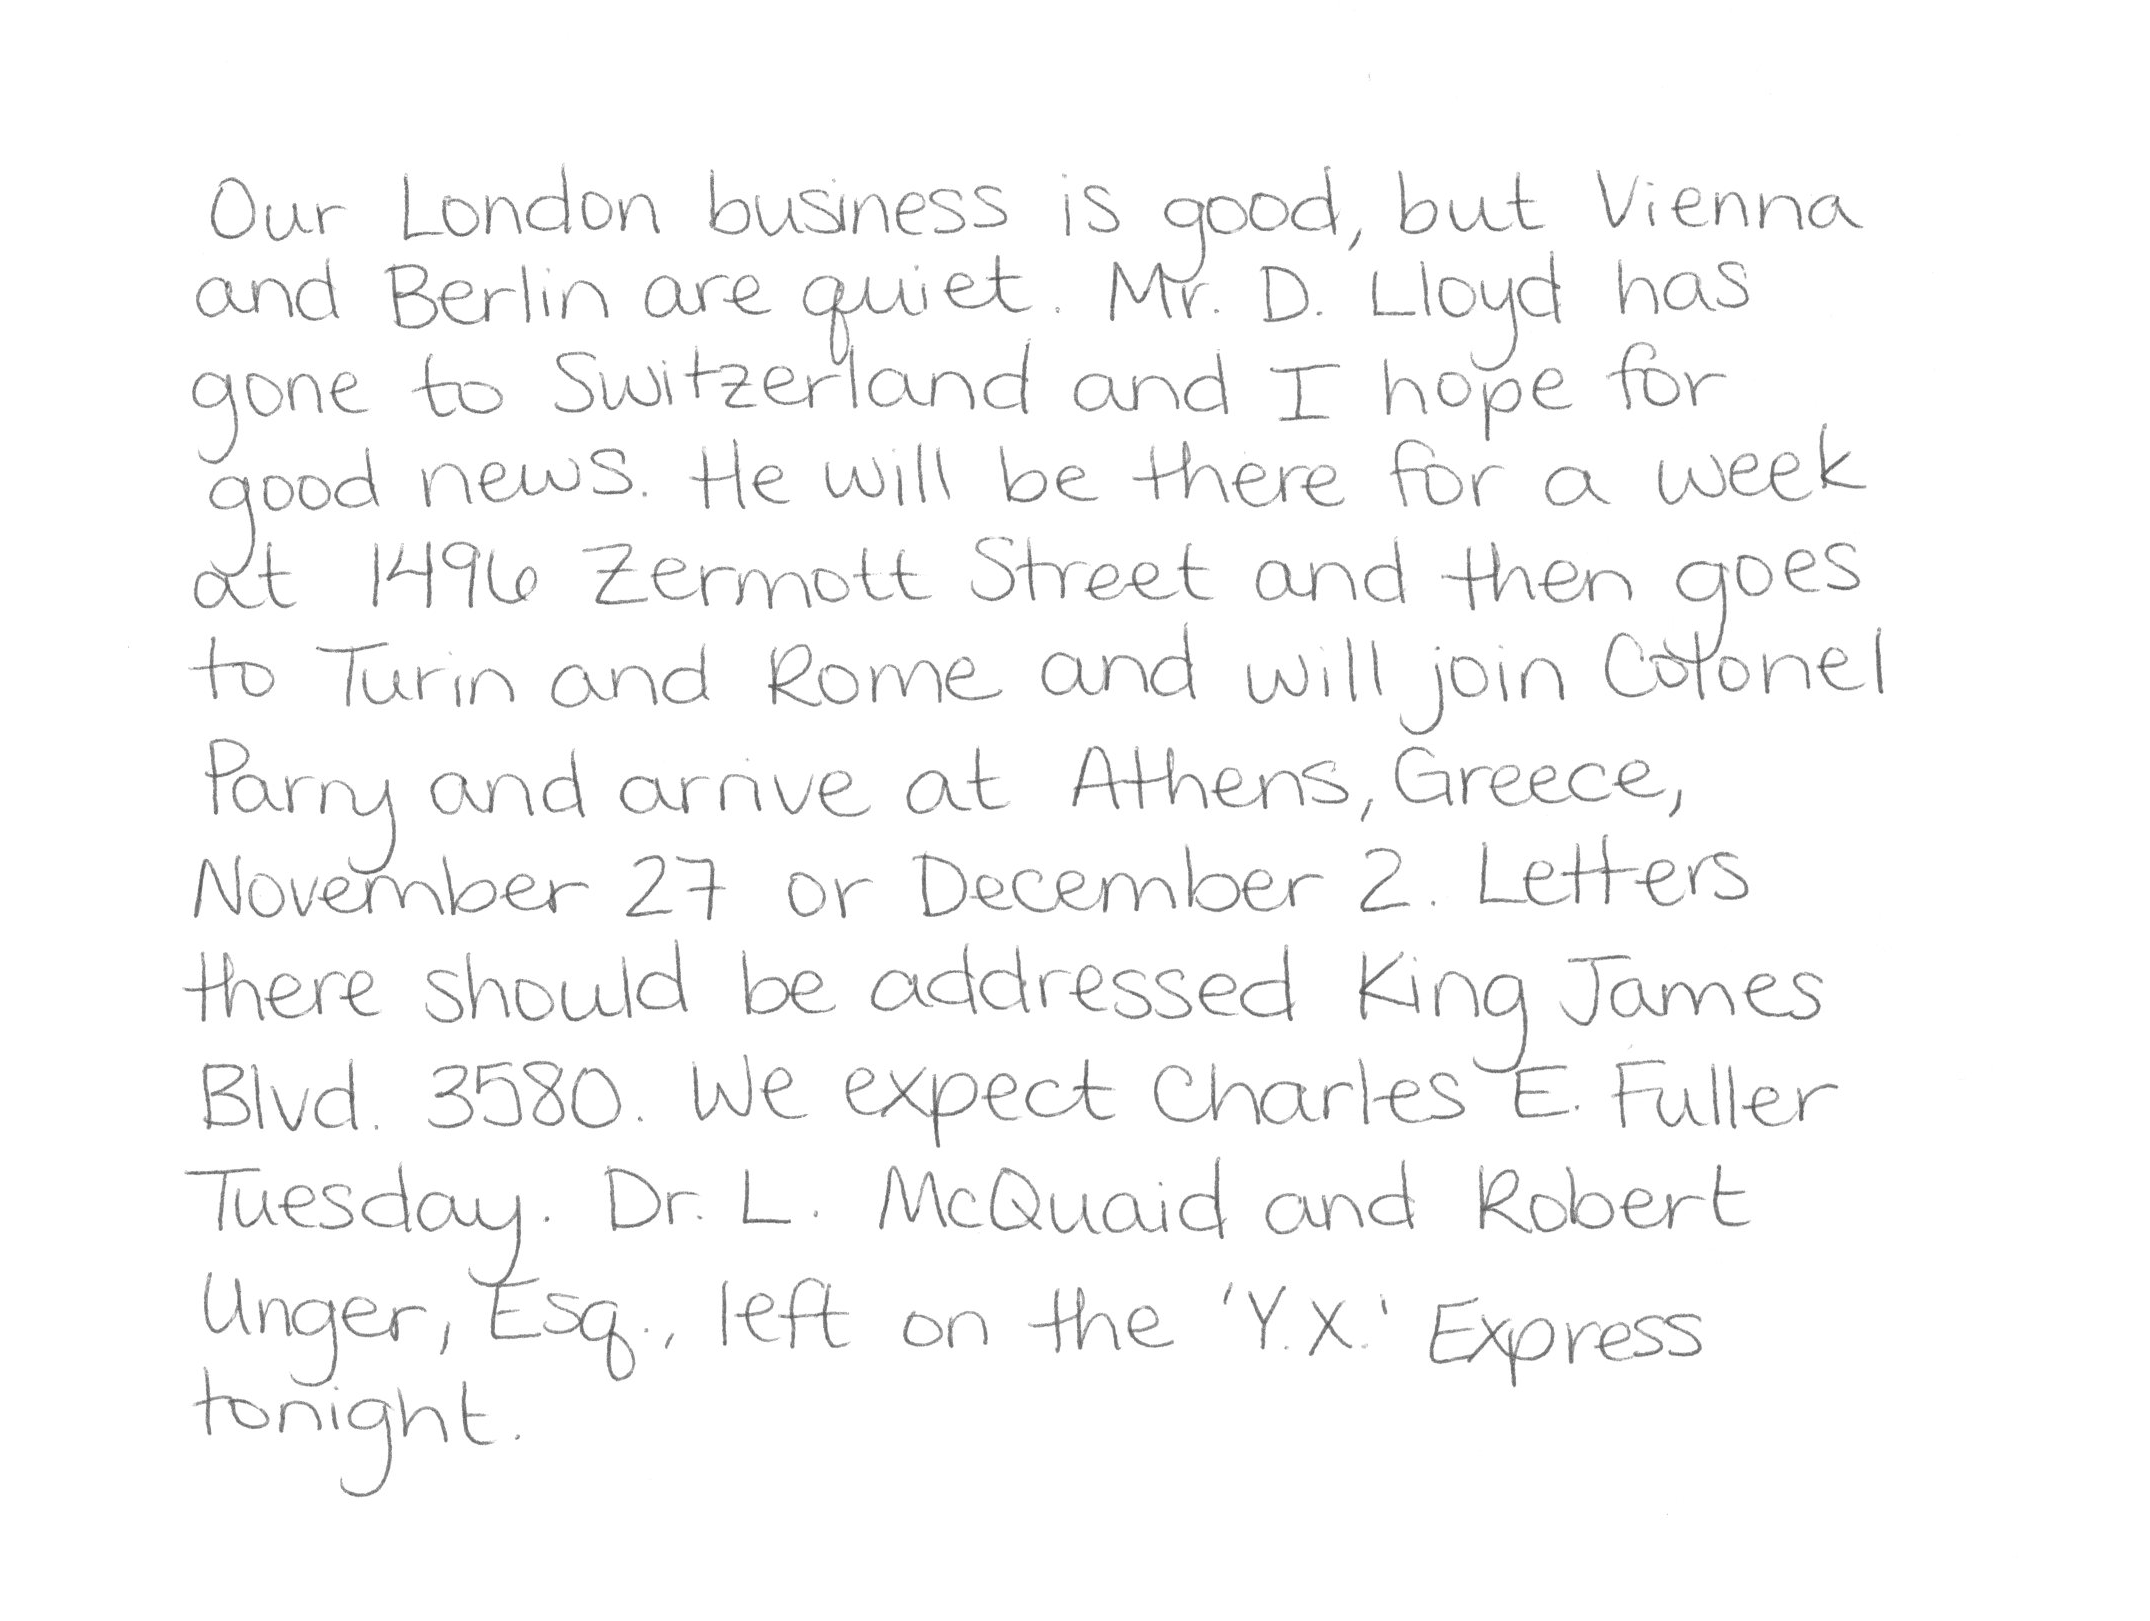 Our London business is good, but Vienna
and Berlin are quiet. Mr. D. Lloyd has
gone to Switzerland and I hope for
good news. He will be there for a week
at 1496 Zermott Street and then goes
to Turin and Rome and will join Colonel
Parry and arrive at Athens, Greece,
November 27 or December 2. Letters
there should be addressed King James
Blvd. 3580. We expect Charles E. Fuller
Tuesday. Dr. L. McQuaid and Robert
Unger, Esq., left on the 'Y.X.' Express
tonight.